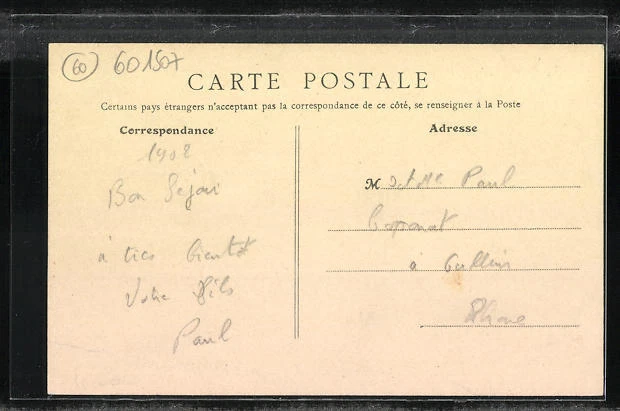 60 601507
CARTE POSTALE
Certains pays étrangers n'acceptant pas la correspondance de ce côté, se renseigner à la Poste
Correspondance
Adresse
1908
Bon Séjour
à tres bientot
Votre Fils
Paul
M et Mme Paul
à Oullins
Rhone